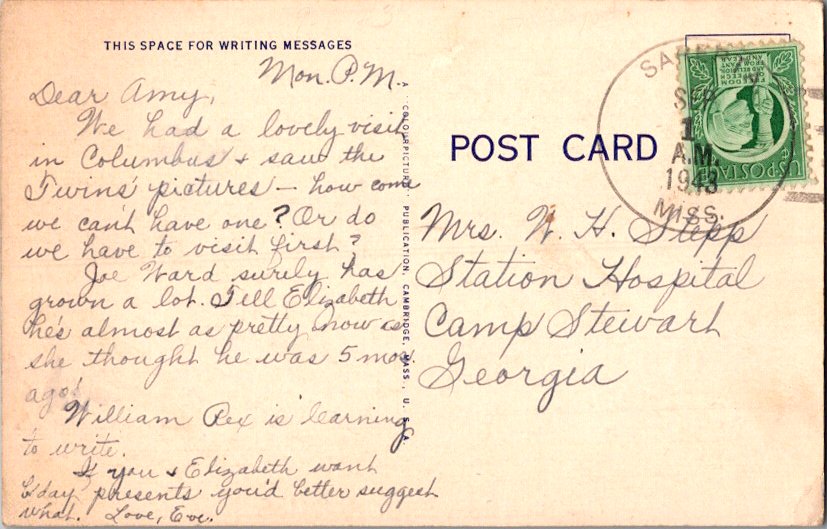 THIS SPACE FOR WRITING MESSAGES
Mon. P.M.
Dear Amy,
We had a lovely visit
in Columbus + saw the
Twins' pictures — how come
we can't have one? Or do
we have to visit first?
Joe Ward surely has
grown a lot. Tell Elizabeth
he's almost as pretty now as
she thought he was 5 mos.
ago!
William Rex is learning
to write.
If you + Elizabeth want
b'day presents you'd better suggest
what. Love, Eve.
A COLOURPICTURE PUBLICATION, CAMBRIDGE, MASS., U.S.A.
POST CARD
SEP
1
A.M.
1943
MISS.
FREEDOM
OF SPEECH
AND RELIGION
FROM WANT
AND FEAR
U.S. POSTAGE
Mrs. W. H. Stepp
Station Hospital
Camp Stewart
Georgia